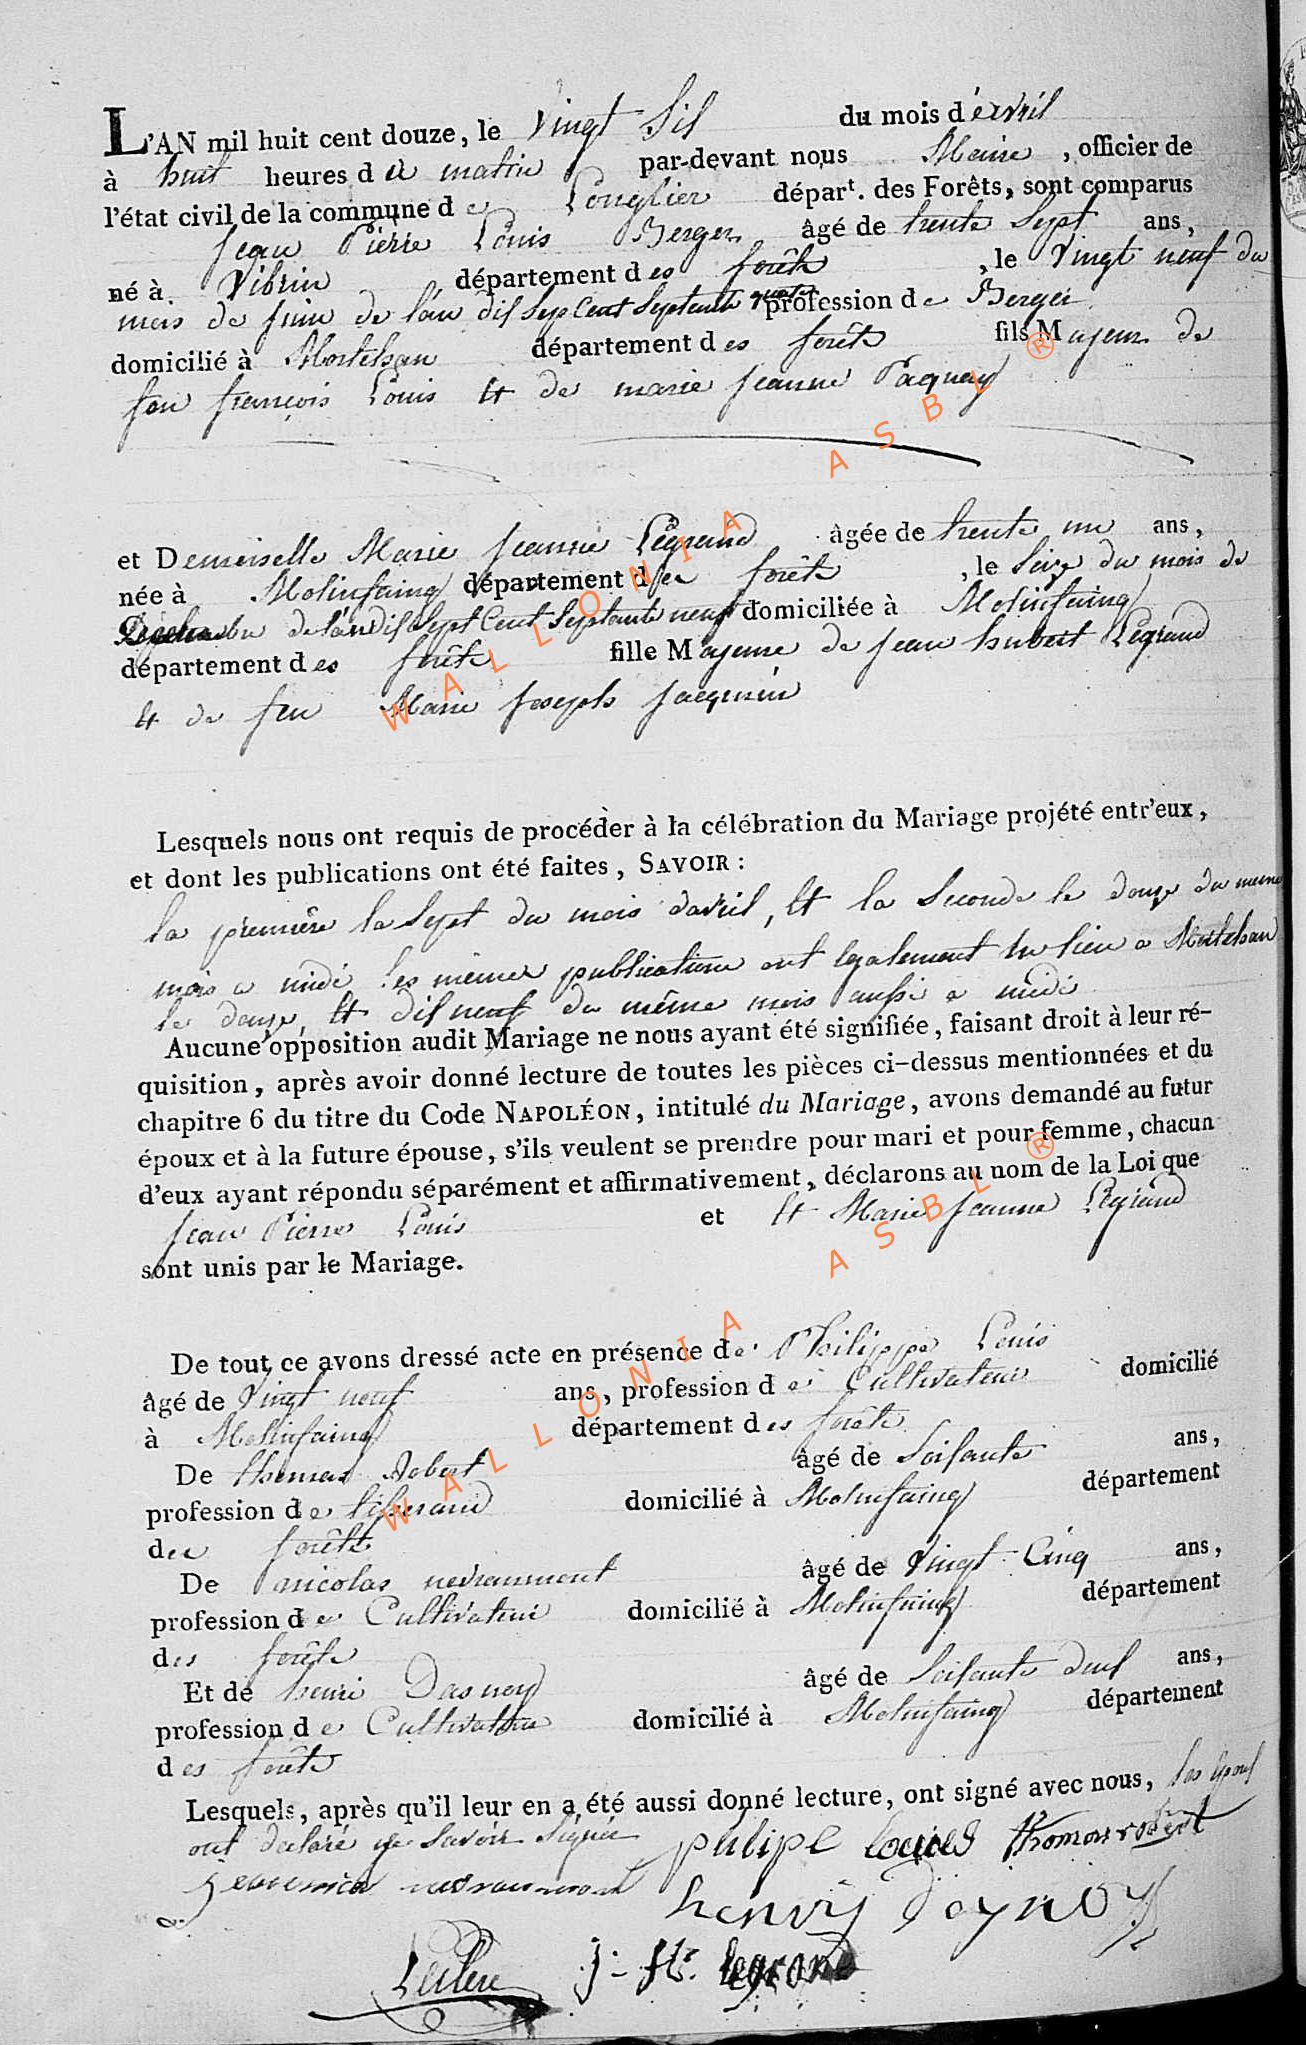 L'AN mil huit cent douze, le Vingt Sil du mois d'avril
à huit heures d u matin par-devant nous Maire, officier de
l'état civil de la commune d e Longlier départ. des Forêts, sont comparus
Jean Pierre Louis Berger âgé de trente Sept ans,
né à Vibrin département d es forêts, le Vingt neuf du
mois de juin de l'an dil Sept Cent Septante quatre profession d e Berger
domicilié à Mortehan département d es forêts fils Majeur de
feu françois Louis et de marie jeanne Paquay
et Demeiselle Marie jeanne Legrand âgée de trente une ans,
née à Molinfaing département d es forêts, le Seize du mois de
de l'an dil Sept Cent Septante neuf domiciliée à Molinfaing
département d es forêts fille Majeure de jean hubert Legrand
et de feu Marie joseph jacquemin
Lesquels nous ont requis de procéder à la célébration du Mariage projété entr'eux,
et dont les publications ont été faites, SAVOIR :
la première le Sept du mois d'avril, et la Seconde le douze du meme
mois a midi les mêmes publications ont egalement eu lieu a Mortehan
le douze, et dil neuf du même mois aussi a midi
Aucune opposition audit Mariage ne nous ayant été signifiée, faisant droit à leur ré-
quisition, après avoir donné lecture de toutes les pièces ci-dessus mentionnées et du
chapitre 6 du titre du Code NAPOLÉON, intitulé du Mariage, avons demandé au futur
époux et à la future épouse, s'ils veulent se prendre pour mari et pour femme, chacun
d'eux ayant répondu séparément et affirmativement, déclarons au nom de la Loi que
Jean Pierre Louis et et Marie Jeanne Legrand
sont unis par le Mariage.
De tout ce avons dressé acte en présence de Philippe Louis
âgé de Vingt neuf ans, profession d e Cultivateur domicilié
à Molinfaing département d es forêts
De thomas Robert âgé de Soisante ans,
profession d e tisserand domicilié à Molinfaing département
des forêts
De nicolas nevraumont âgé de Vingt Cinq ans,
profession d e Cultivateur domicilié à Molinfaing département
des forêts
Et de henri Dasnoy âgé de Soisante deul ans,
profession d e Cultivateur domicilié à Molinfaing département
des forêts
Lesquels, après qu'il leur en a été aussi donné lecture, ont signé avec nous, les epoul
ont déclaré ne Savoir Signer philipe Louies thomas robert
nevraumont
henry
Leclere J. H. legrand
WALLONIA ASBL ®
WALLONIA ASBL ®